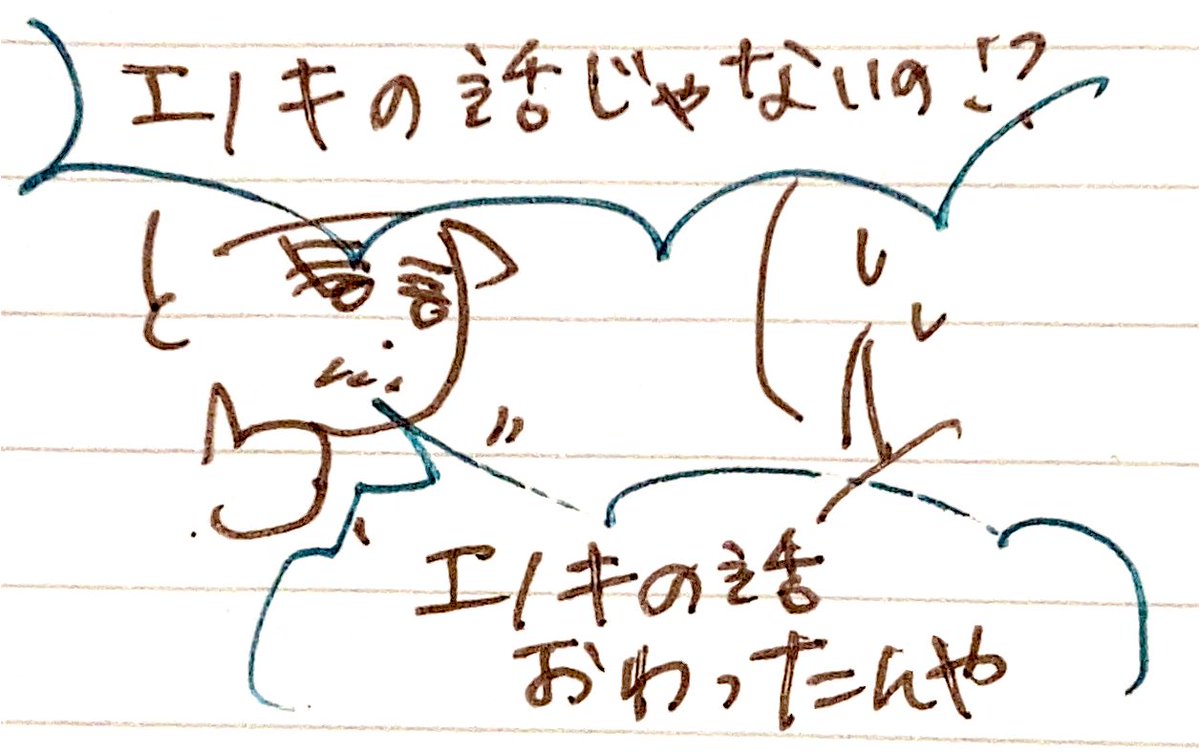 エノキの話じゃないの!?
エノキの話
おわったんや